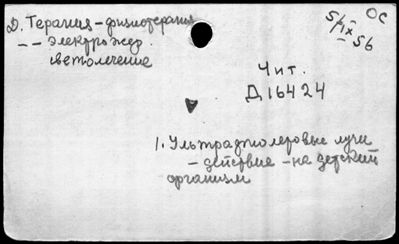 Д. Терапия - физиотерапия
-- электрожер.
светолечение
5/IX 56
ОС
Чит.
Д16424
1. Ультрафиолетовые лучи
- действие - на детский
организм